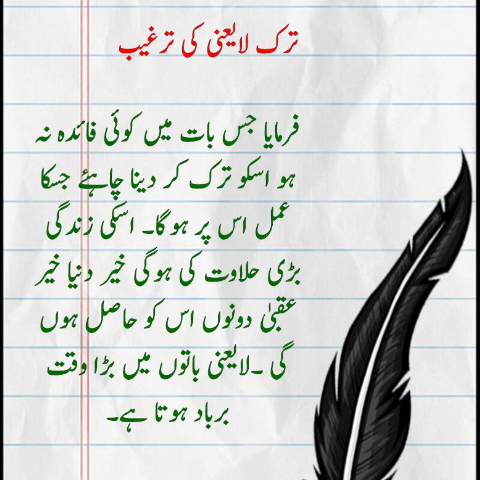 ترک لایعنی کی ترغیب
فرمایا جس بات میں کوئی فائدہ نہ
ہو اسکو ترک کر دینا چاہئے جسکا
عمل اس پر ہوگا۔ اسکی زندگی
بڑی حلاوت کی ہوگی خیر دنیا خیر
عقبیٰ دونوں اس کو حاصل ہوں
گی ۔لایعنی باتوں میں بڑا وقت
برباد ہوتا ہے۔